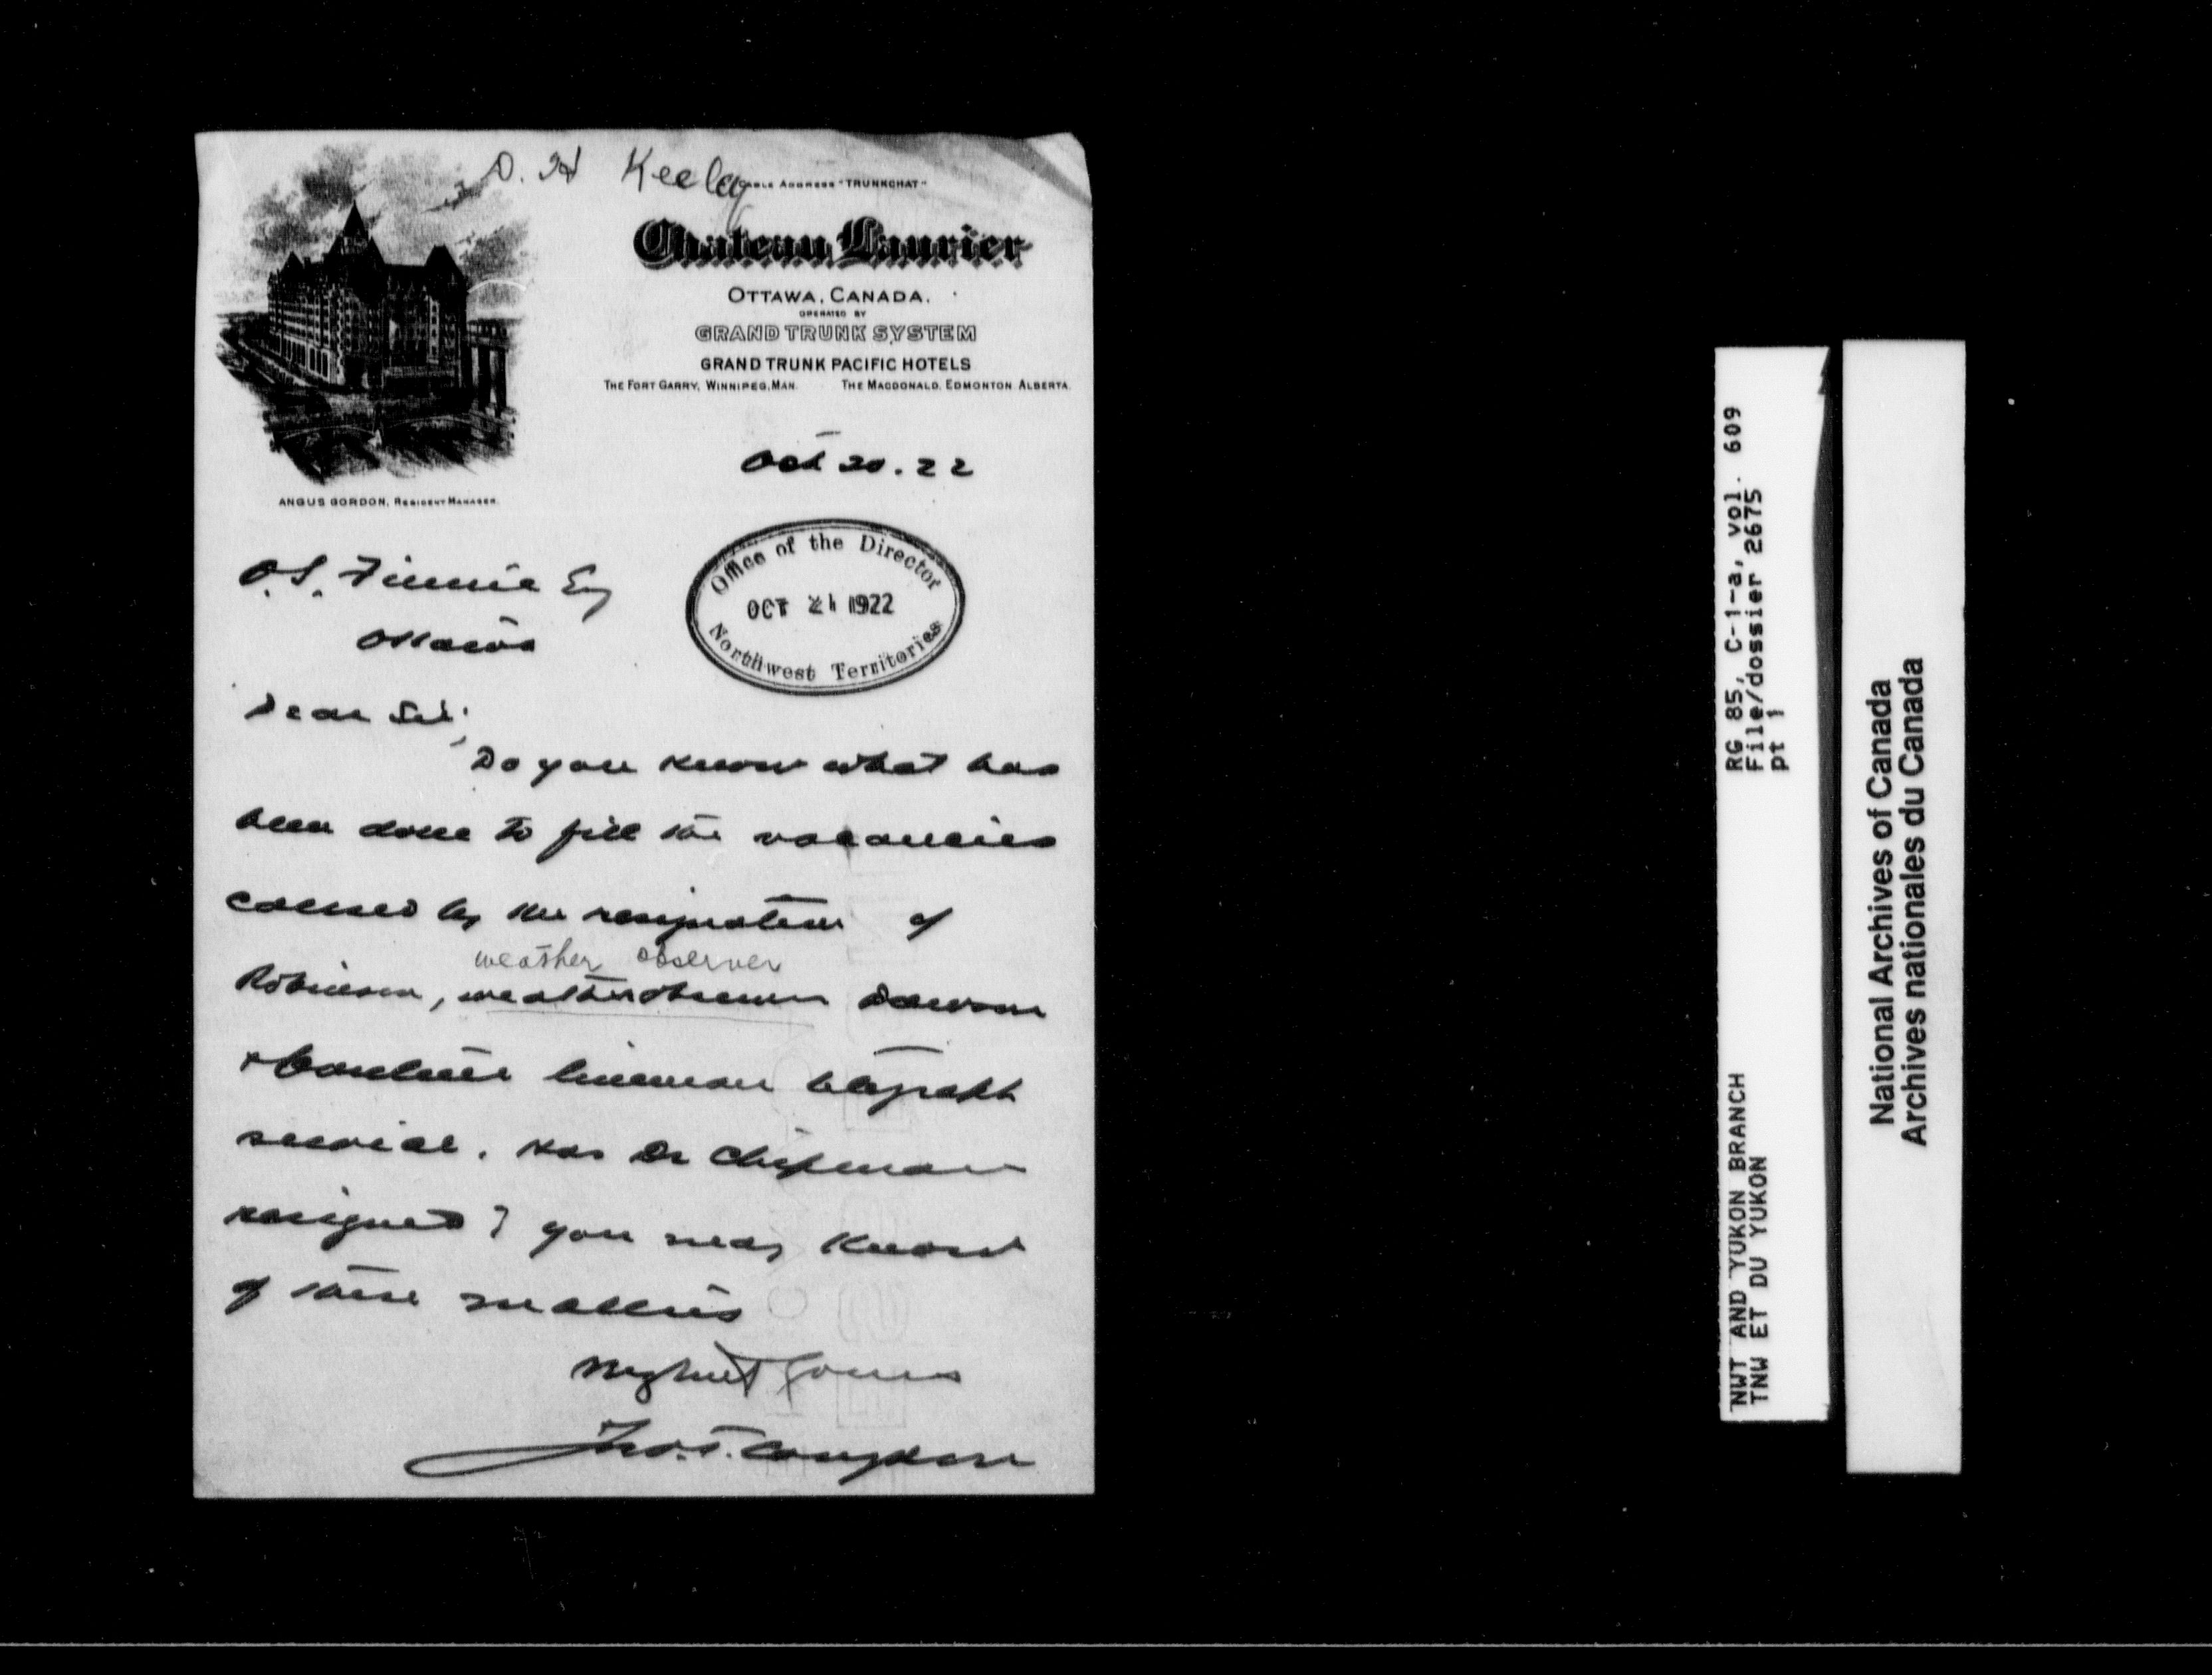 D. H Keeley
Cable Address "TRUNKCHAT"
Chateau Laurier
OTTAWA, CANADA.
OPERATED BY
GRAND TRUNK SYSTEM
GRAND TRUNK PACIFIC HOTELS
THE FORT GARRY, WINNIPEG, MAN. THE MACDONALD, EDMONTON ALBERTA.
ANGUS GORDON, RESIDENT MANAGER.
Oct 20. 22
Office of the Director
OCT 21 1922
Northwest Territories
O.S. Finnie Esq
Ottawa
Dear Sir;
Do you know what has
been done to fill the vacancies
caused by the resignation of
weather observer
Robinson, weather observer Dawson
& lineman telegraph
service. Has Dr Chipman
resigned? You may know
of these matters
Yours
Jno. T. Congdon
RG 85, C-1-a, vol. 609
File/dossier 2675
pt 1
NWT AND YUKON BRANCH
TNW ET DU YUKON
National Archives of Canada
Archives nationales du Canada